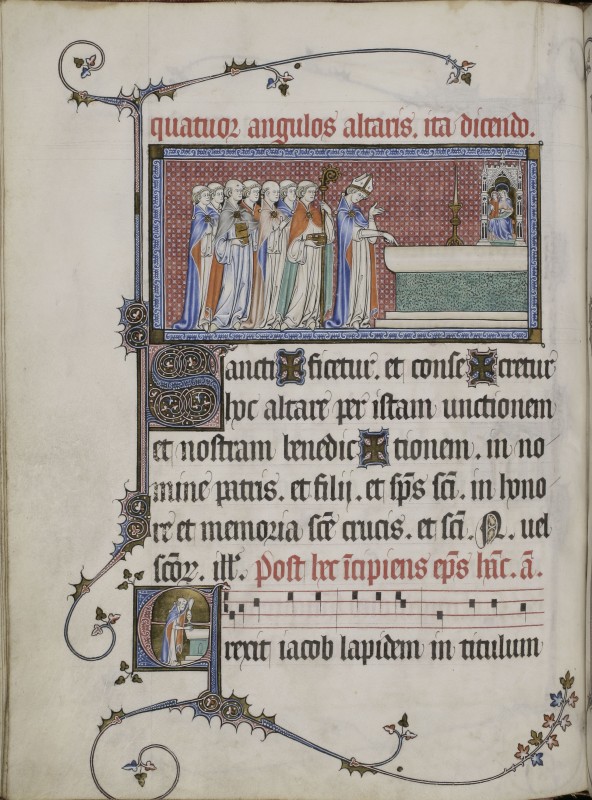 quatuor angulos altaris. ita dicendo.
Sancti✠ficetur. et conse✠cretur
hoc altare per istam unctionem
et nostram benedic✠tionem. in no
mine patris. et filij. et sp̄s sc̄i. in hono
re et memoria sc̄e crucis. et sc̄i. N. uel
sc̄oꝝ. ill'. Post hec īcipiens ep̄s hāc. ā.
Erexit iacob lapidem in titulum